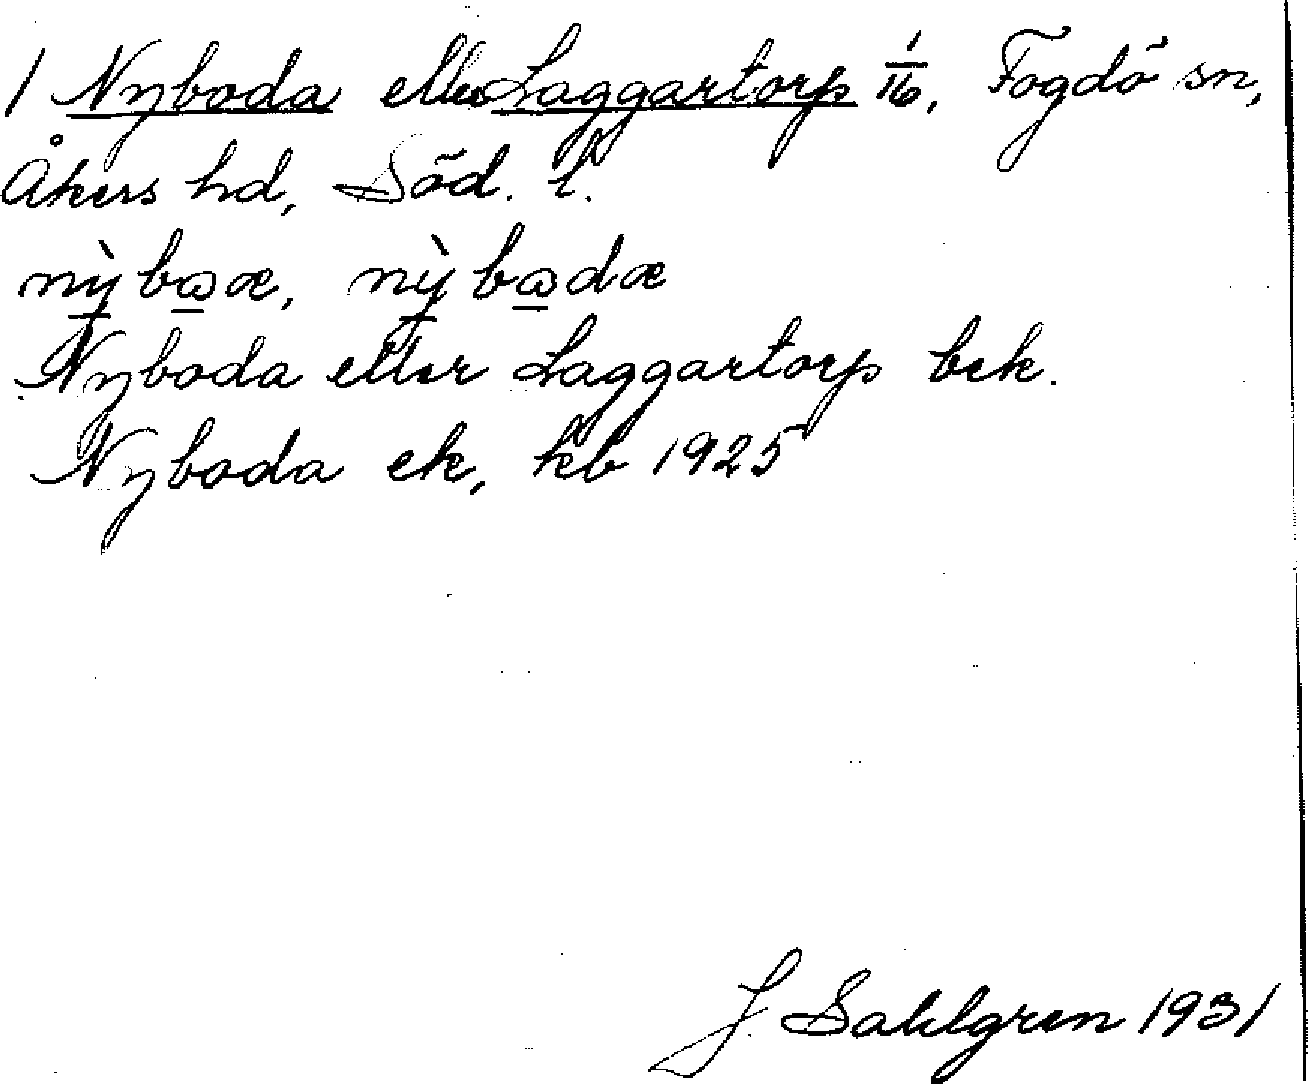 1 Nyboda eller Laggartorp 1/16, Fogdö sn,
Åkers hd, Söd. l.
nỳbωæ, nỳbωdæ
Nyboda eller Laggartorp bek.
Nyboda ek, kb 1925
J. Sahlgren 1931